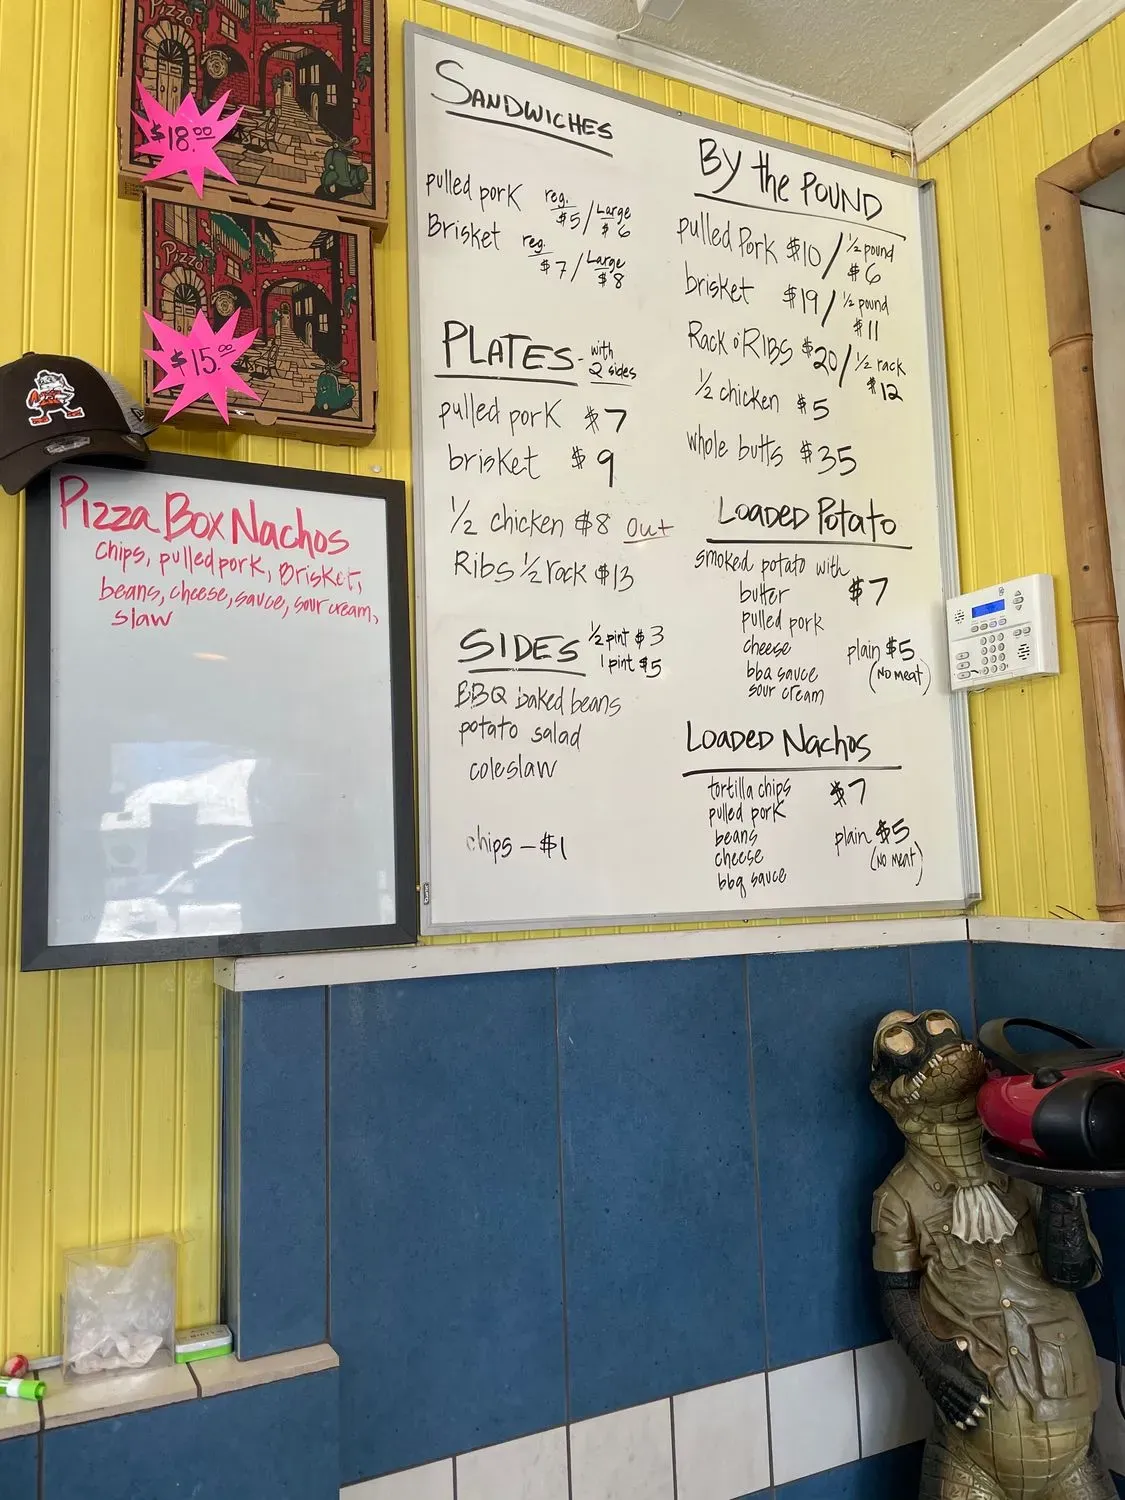 Pizza
$18.00
Pizza
$15.00
Pizza Box Nachos
chips, pulled pork, Brisket,
beans, cheese, sauce, sour cream,
slaw
SANDWICHES
pulled pork reg. $5 / Large $6
Brisket reg. $7 / Large $8
PLATES - with 2 sides
pulled pork $7
brisket $9
1/2 chicken $8 out
Ribs 1/2 rack $13
SIDES 1/2 pint $3
1 pint $5
BBQ baked beans
potato salad
coleslaw
chips - $1
BY the POUND
pulled Pork $10 / 1/2 pound $6
brisket $19 / 1/2 pound $11
Rack o' RIBS $20 / 1/2 rack $12
1/2 chicken $5
whole butts $35
LOADED Potato
smoked potato with
butter $7
pulled pork
cheese plain $5
bbq sauce (NO MEAT)
sour cream
LOADED Nachos
tortilla chips $7
pulled pork
beans plain $5
cheese (NO MEAT)
bbq sauce